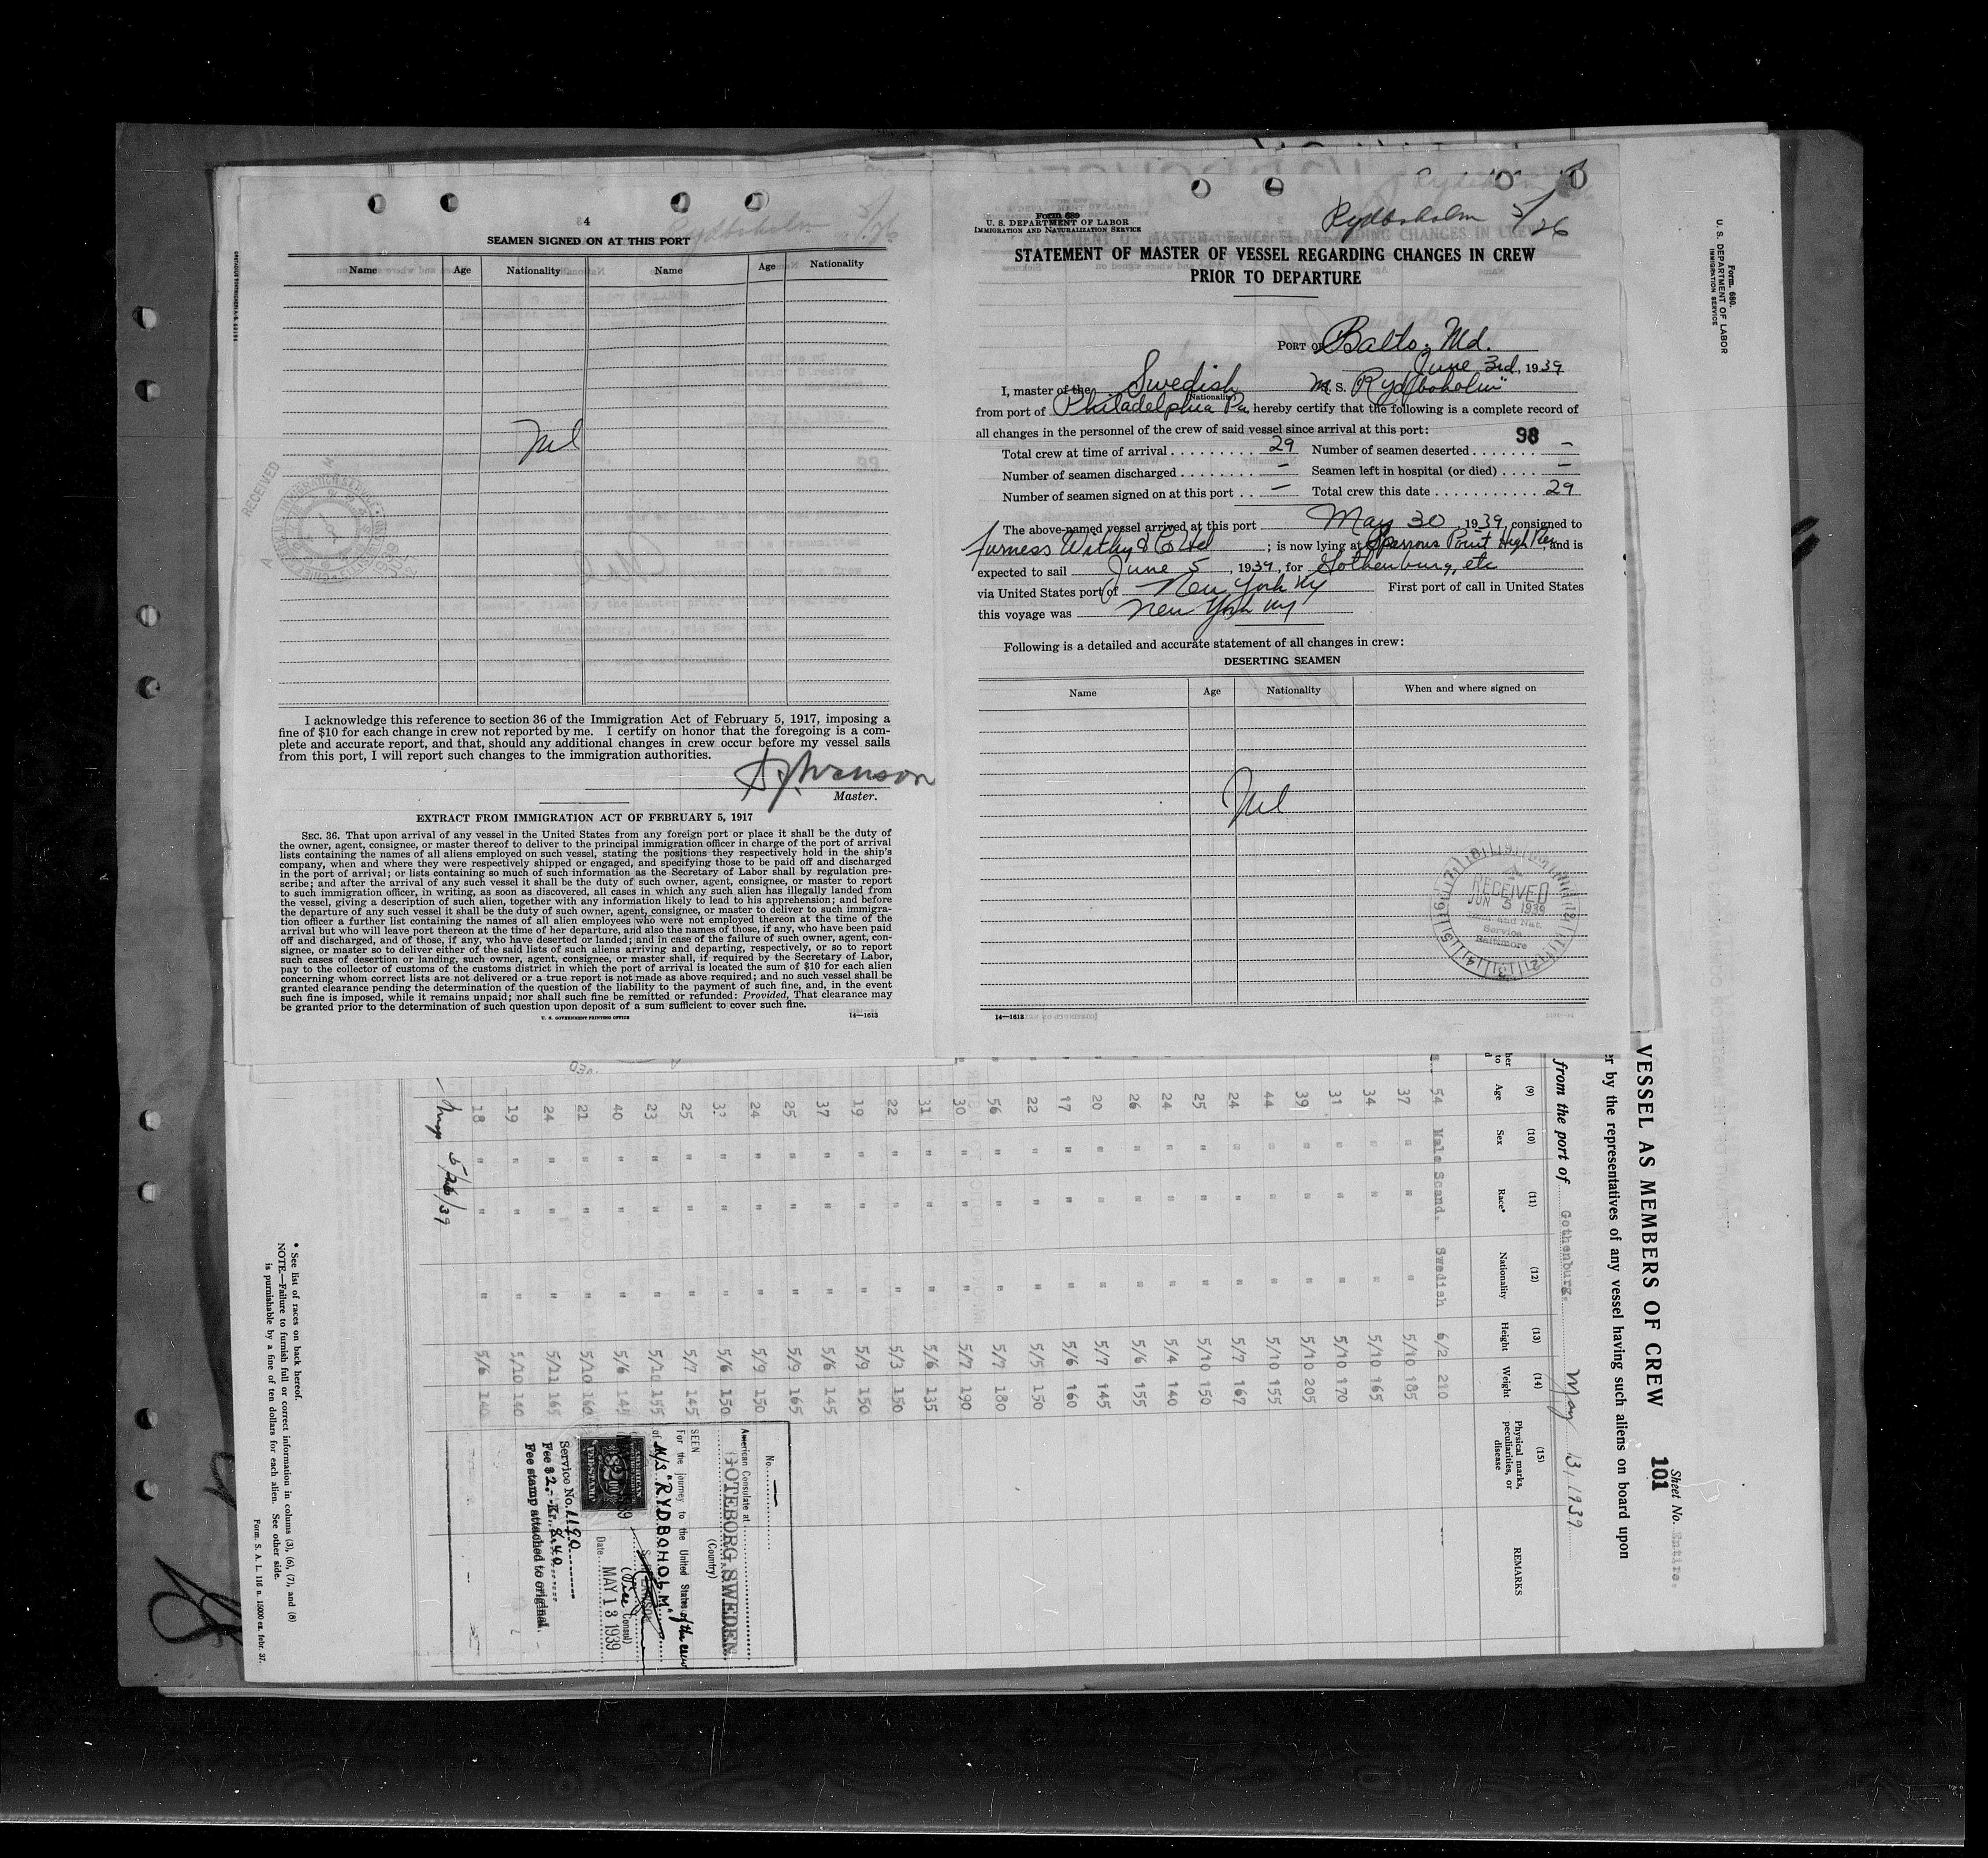 4
SEAMEN SIGNED ON AT THIS PORT
Name Age Nationality Name Age Nationality
Nil
I acknowledge this reference to section 36 of the Immigration Act of February 5, 1917, imposing a
fine of $10 for each change in crew not reported by me. I certify on honor that the foregoing is a com-
plete and accurate report, and that, should any additional changes in crew occur before my vessel sails
from this port, I will report such changes to the immigration authorities.
Master.
EXTRACT FROM IMMIGRATION ACT OF FEBRUARY 5, 1917
SEC. 36. That upon arrival of any vessel in the United States from any foreign port or place it shall be the duty of
the owner, agent, consignee, or master thereof to deliver to the principal immigration officer in charge of the port of arrival
lists containing the names of all aliens employed on such vessel, stating the positions they respectively hold in the ship's
company, when and where they were respectively shipped or engaged, and specifying those to be paid off and discharged
in the port of arrival; or lists containing so much of such information as the Secretary of Labor shall by regulation pre-
scribe; and after the arrival of any such vessel it shall be the duty of such owner, agent, consignee, or master to report
to such immigration officer, in writing, as soon as discovered, all cases in which any such alien has illegally landed from
the vessel, giving a description of such alien, together with any information likely to lead to his apprehension; and before
the departure of any such vessel it shall be the duty of such owner, agent, consignee, or master to deliver to such immigra-
tion officer a further list containing the names of all alien employees who were not employed thereon at the time of the
arrival but who will leave port thereon at the time of her departure, and also the names of those, if any, who have been paid
off and discharged, and of those, if any, who have deserted or landed; and in case of the failure of such owner, agent, con-
signee, or master so to deliver either of the said lists of such aliens arriving and departing, respectively, or so to report
such cases of desertion or landing, such owner, agent, consignee, or master shall, if required by the Secretary of Labor,
pay to the collector of customs of the customs district in which the port of arrival is located the sum of $10 for each alien
concerning whom correct lists are not delivered or a true report is not made as above required; and no such vessel shall be
granted clearance pending the determination of the question of the liability to the payment of such fine, and, in the event
such fine is imposed, while it remains unpaid; nor shall such fine be remitted or refunded: Provided, That clearance may
be granted prior to the determination of such question upon deposit of a sum sufficient to cover such fine.
U. S. GOVERNMENT PRINTING OFFICE 14—1613
RECEIVED
Form 689
U. S. DEPARTMENT OF LABOR
IMMIGRATION AND NATURALIZATION SERVICE
Rydboholm 5/26
STATEMENT OF MASTER OF VESSEL REGARDING CHANGES IN CREW
PRIOR TO DEPARTURE
PORT OF Balto, Md.
June 3rd, 1939
I, master of the Swedish M. S. Rydboholm"
Nationality
from port of Philadelphia Pa, hereby certify that the following is a complete record of
all changes in the personnel of the crew of said vessel since arrival at this port:
98
Total crew at time of arrival 29 Number of seamen deserted —
Number of seamen discharged — Seamen left in hospital (or died) —
Number of seamen signed on at this port — Total crew this date 29
The above-named vessel arrived at this port May 30, 1939, consigned to
Furness Withy & Co Ltd; is now lying at Sparrows Point High Pier, and is
expected to sail June 5, 1939, for Gothenburg, etc
via United States port of New York NY First port of call in United States
this voyage was New York NY
Following is a detailed and accurate statement of all changes in crew:
DESERTING SEAMEN
Name Age Nationality When and where signed on
Nil
RECEIVED
JUN 5 1939
Immig. and Nat.
Service
Baltimore
14—1613
Form. 680.
U. S. DEPARTMENT OF LABOR
IMMIGRATION SERVICE
Sheet No. Entire.
101
VESSEL AS MEMBERS OF CREW
by the representatives of any vessel having such aliens on board upon
from the port of Gothenburg. May 13, 1939
(9) (10) (11) (12) (13) (14) (15)
Age Sex Race* Nationality Height Weight Physical marks, peculiarities, or disease REMARKS
54 Male Scand. Swedish 6/2 210
37 " " " 5/10 185
34 " " " 5/10 165
31 " " " 5/10 170
39 " " " 5/10 205
44 " " " 5/10 155
24 " " " 5/7 167
25 " " " 5/10 150
24 " " " 5/4 140
26 " " " 5/6 155
20 " " " 5/7 145
17 " " " 5/6 160
22 " " " 5/5 150
56 " " " 5/7 180
30 " " " 5/7 190
31 " " " 5/6 135
22 " " " 5/3 150
19 " " " 5/9 150
37 " " " 5/6 145
25 " " " 5/9 165
24 " " " 5/9 150
" " " 5/6 150
25 " " " 5/7 145
23 " " " 5/10 155
40 " " " 5/6 145
21 " " " 5/10 160
24 " " " 5/11 165
19 " " " 5/10 140
18 " " " 5/6 140
5/26/39
No. —
American Consulate at
GOTEBORG, SWEDEN
(Country)
SEEN
For the journey to the United States of the crew
of M/S "RYDBOHOLM"
(Vice Consul)
Date MAY 13 1939
AMERICAN
$2.00
FEE STAMP
Service No. 1190
Fee $2.- Kr. 8.40
Fee stamp attached to original.
* See list of races on back hereof.
NOTE.—Failure to furnish full or correct information in colums (3), (6), (7), and (8)
is punishable by a fine of ten dollars for each alien. See other side.
Form. S. A. L. 116 n. 15000 ex. febr. 37.